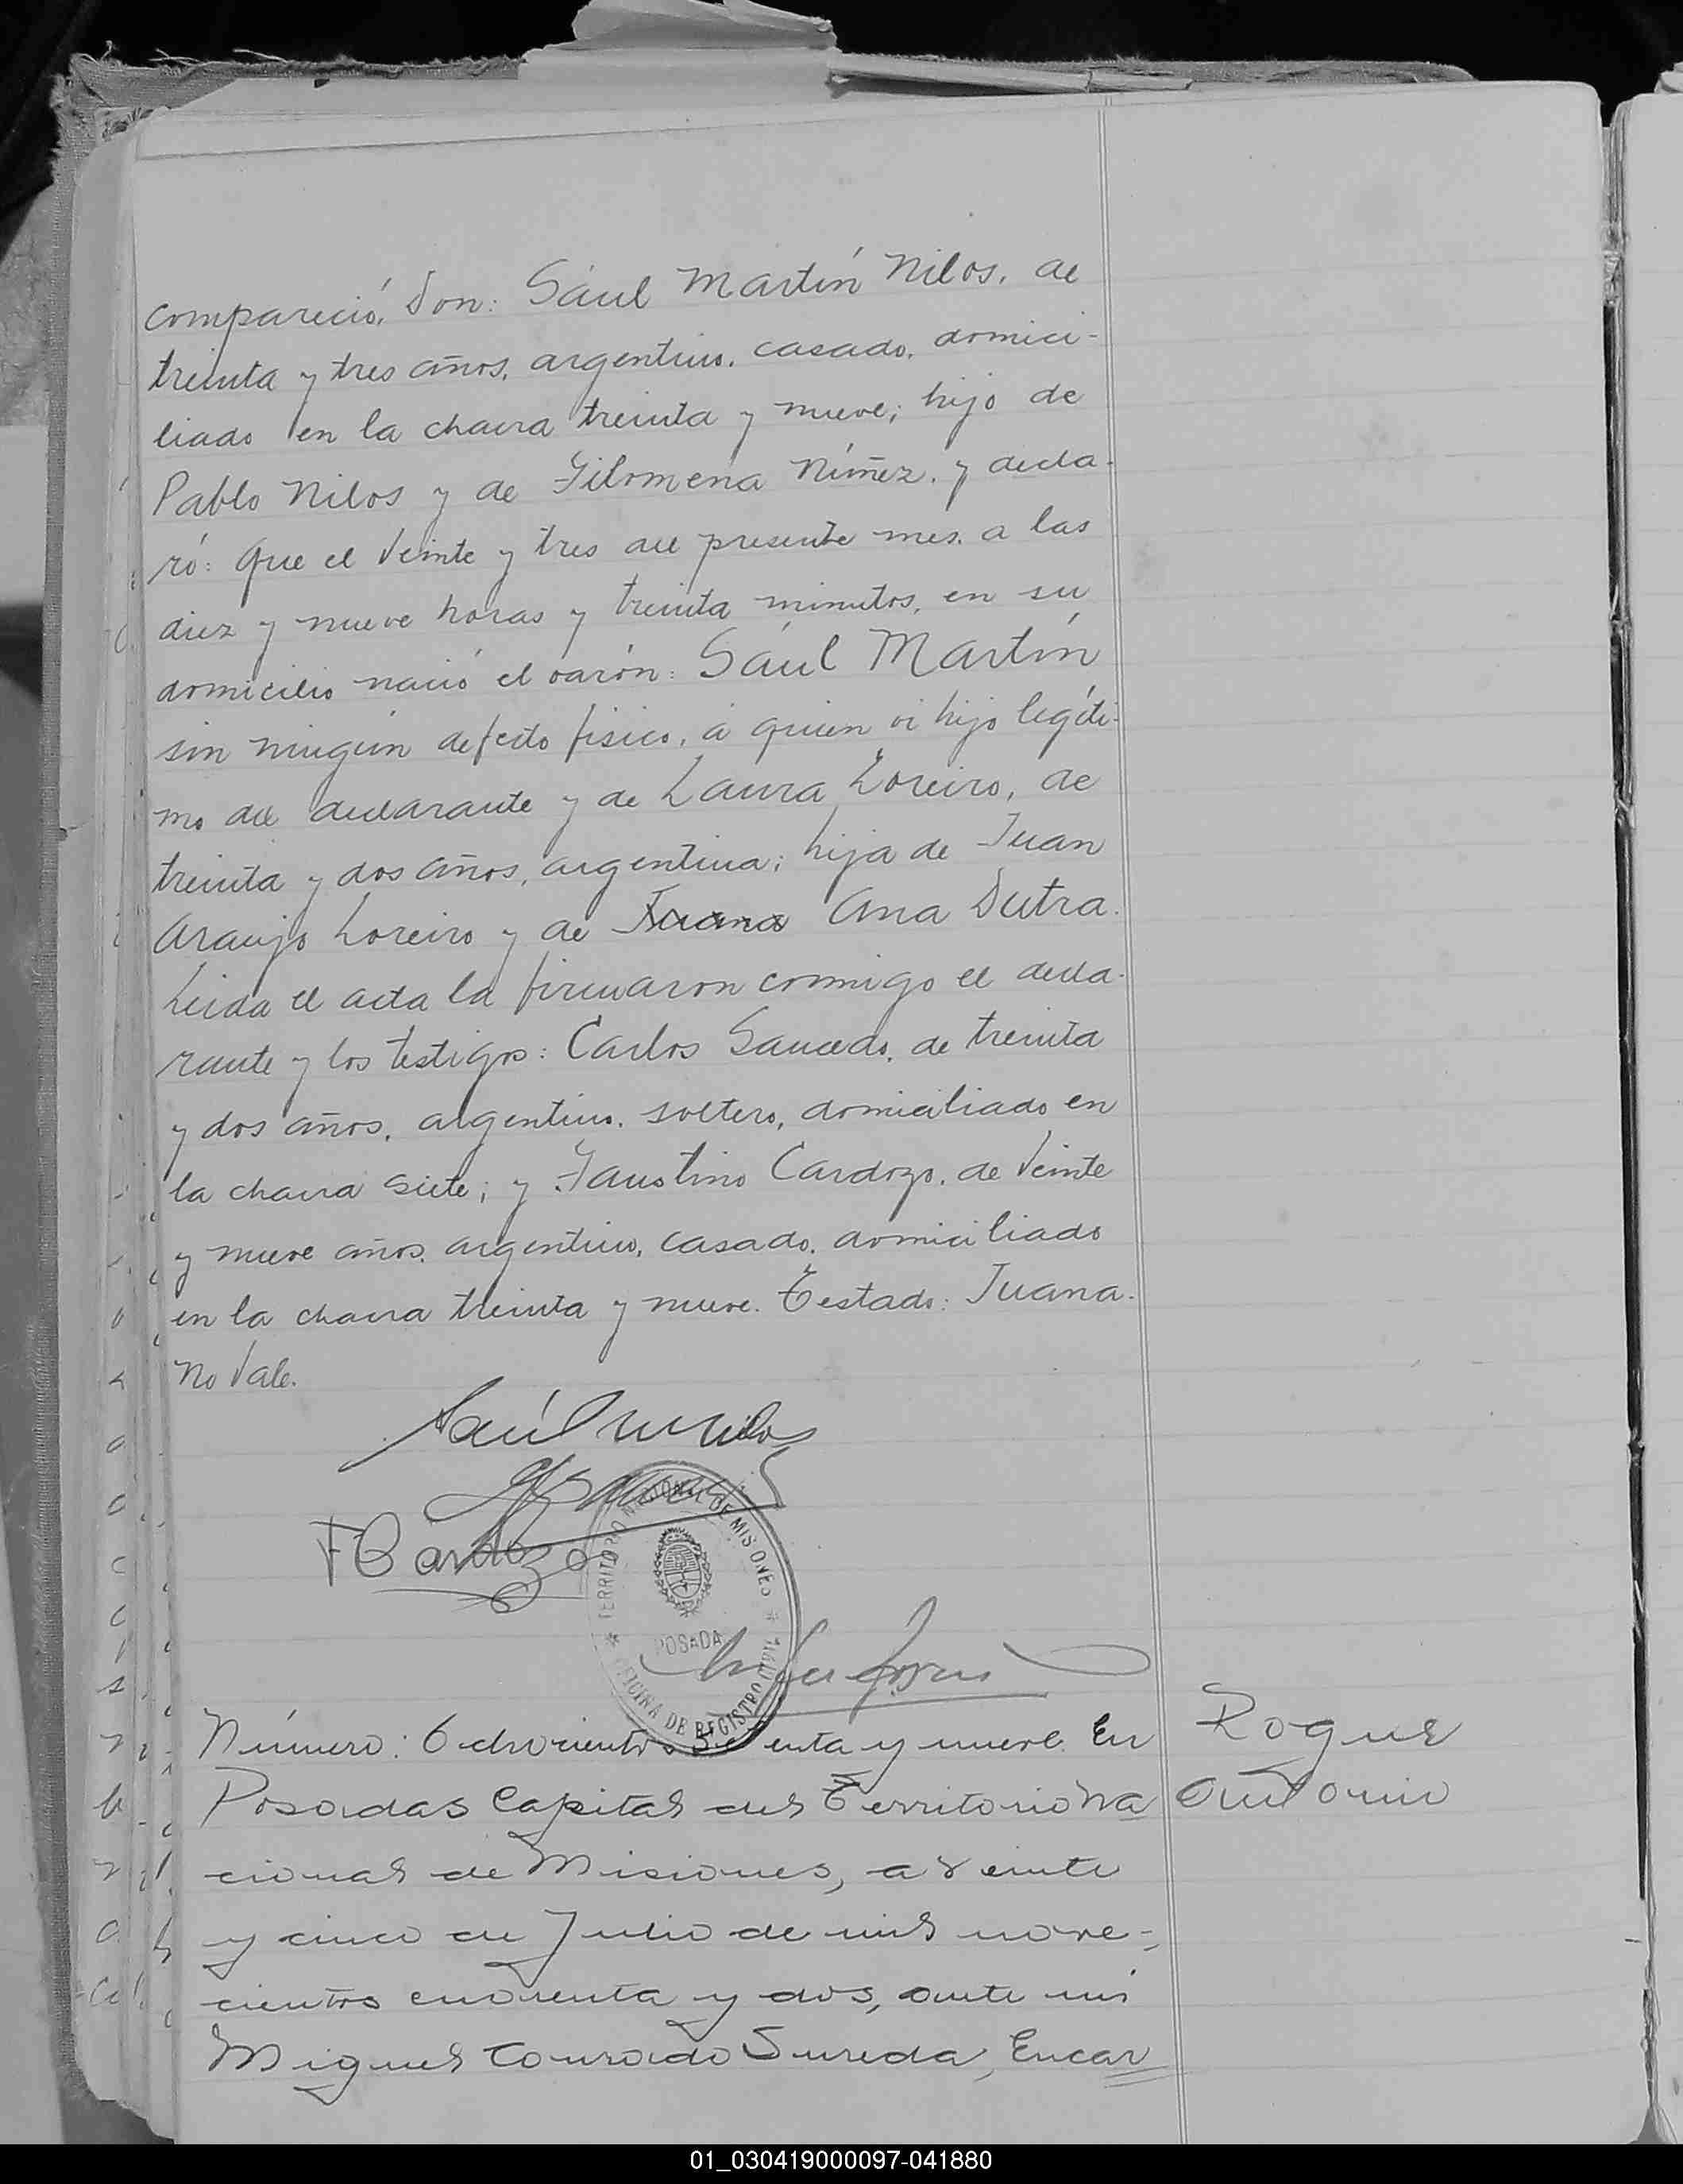 compareció, Don: Sául Martín Nilos, de
treinta y tres años, argentino, casado, domici-
liado en la chacra treinta y nueve; hijo de
Pablo Nilos y de Filomena Núñez, y decla-
ró: Que el veinte y tres del presente mes, a las
diez y nueve horas y treinta minutos, en su
domicilio nació el varón: Sául Martín
sin ningún defecto físico, á quien vi hijo legíti-
mo del declarante y de Laura Loreiro, de
treinta y dos años, argentina; hija de Juan
Araujo Loreiro y de Juana Ana Dutra.
Leida el acta la firmaron conmigo el decla-
rante y los testigos: Carlos Saucedo, de treinta
y dos años, argentino, soltero, domiciliado en
la chacra siete; y Faustino Cardozo, de veinte
y nueve años, argentino, casado, domiciliado
en la chacra treinta y nueve. Testado: Juana.
No vale.
Saúl M Nilos
F Cardozo
TERRITORIO NACIONAL DE MISIONES
POSADAS
OFICINA DE REGISTRO CIVIL
Número: Ochocientos enta y nueve. En
Posadas Capital del Territorio Na
cional de Misiones, a veinte
y cinco de Julio de mil nove-
cientos cuarenta y dos, ante mi
Miguel Conrado Sureda, Encar
Roque
Antonio
01_030419000097-041880